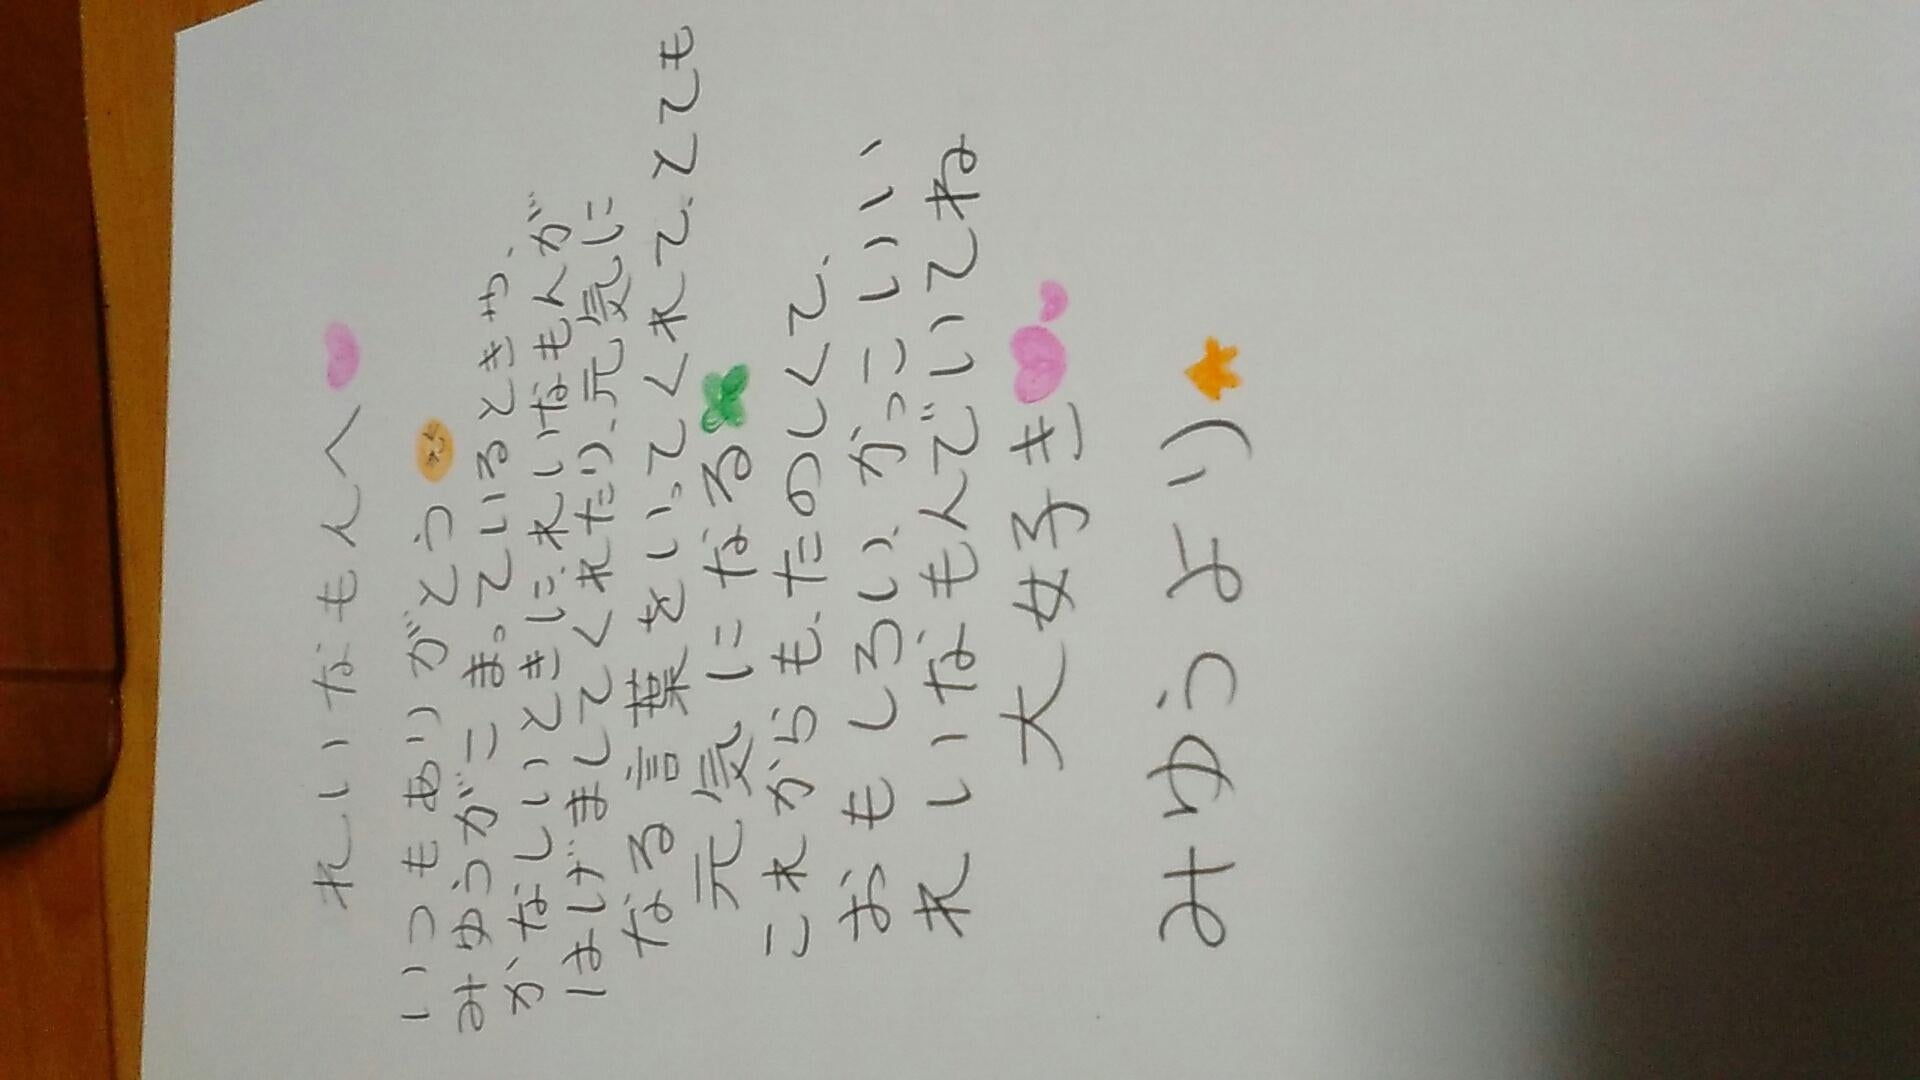 れいなもんへ
いつもありがとう
みゆうがこまっているときや、
かなしいときに、れいなもんが
はげましてくれたり、元気に
なる言葉をいってくれて、とても
元気になる
これからも、たのしくて、
おもしろい、かっこいい
れいなもんでいてね
大好き
みゆうより